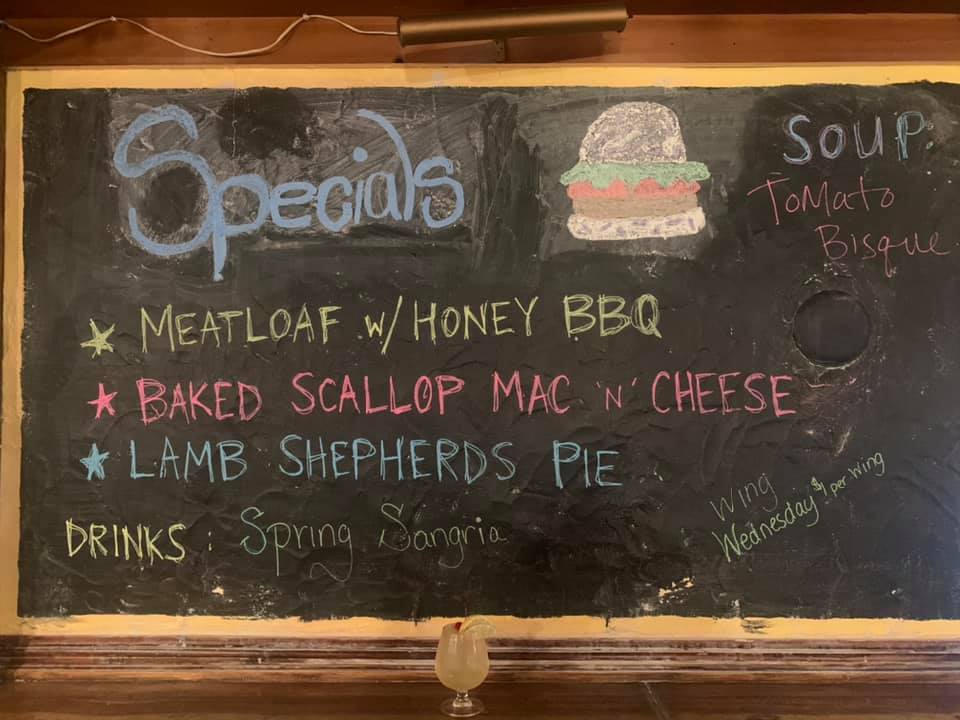 Specials
SOUP:
ToMato
Bisque
MEATLOAF w/ HONEY BBQ
BAKED SCALLOP MAC 'N' CHEESE
LAMB SHEPHERDS PIE
DRINKS: Spring Sangria
Wing
Wednesday $1 per wing